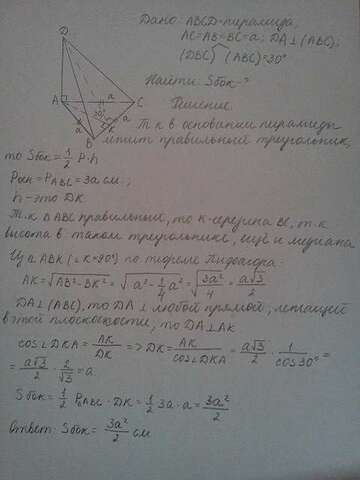 Дано: ABCD-пирамида,
AC=AB=BC=a; DA⊥(ABC);
(DBC) (ABC)=30°
Найти: Sбок-?
Решение
Т.к в основании пирамиды
лежит правильный треугольник,
то Sбок=1/2 P·h
Pосн=P_ABC=3a см.;
h-это DK
Т.к. △ABC правильный, то K-середина BC, т.к
высота в таком треугольнике, ещё и медиана
Из △ABK (∠K=90°) по теореме Пифагора:
AK=√(AB²-BK²) = √(a²-1/4a²) = √(3a²/4) = a√3/2
DA⊥(ABC), то DA⊥ любой прямой, лежащей
в этой плоскости, то DA⊥AK
cos∠DKA=AK/DK => DK=AK/cos∠DKA = a√3/2 · 1/cos30° =
= a√3/2 · 2/√3 = a
Sбок=1/2 P_ABC · DK = 1/2 3a·a = 3a²/2
Ответ: Sбок = 3a²/2 см
D
A
a
C
30°
a
K
a
B